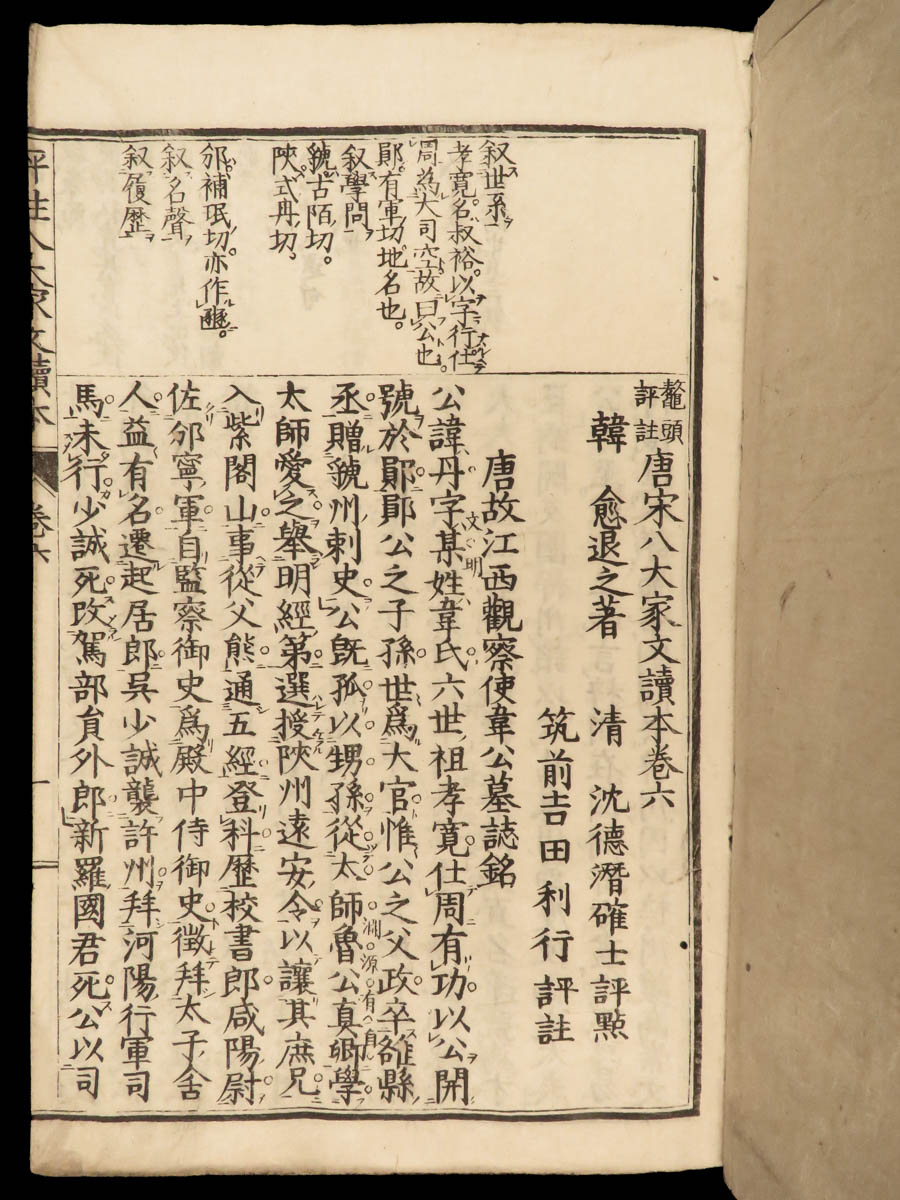 鼇頭
評註
唐宋八大家文讀本卷六
韓愈退之著 清 沈德潛確士評點
筑前吉田利行評註
唐故江西觀察使韋公墓誌銘
公諱丹字某姓韋氏六世祖孝寬仕周有功以公開
文明
號於鄖鄖公之子孫世爲大官惟公之父政卒雒縣
丞贈虢州刺史公旣孤以甥孫從太師魯公眞卿學
淵源有自
太師愛之舉明經第選授陝州遠安令以讓其庶兄
入紫閣山事從父熊通五經登科歷校書郎咸陽尉
佐邠寧軍自監察御史爲殿中侍御史徵拜太子舍
人益有名遷起居郎吳少誠襲許州拜河陽行軍司
馬未行少誠死改駕部員外郎新羅國君死公以司
叙世系ヲ
孝寬名叔裕以字行仕
周爲大司空故曰公也
鄖有軍切地名也。
叙學問ヲ
虢古陌切。
陝式冉切。
邠補珉切亦作豳。
叙名聲ヲ
叙履歷ヲ
評註八大家文讀本 卷六 一